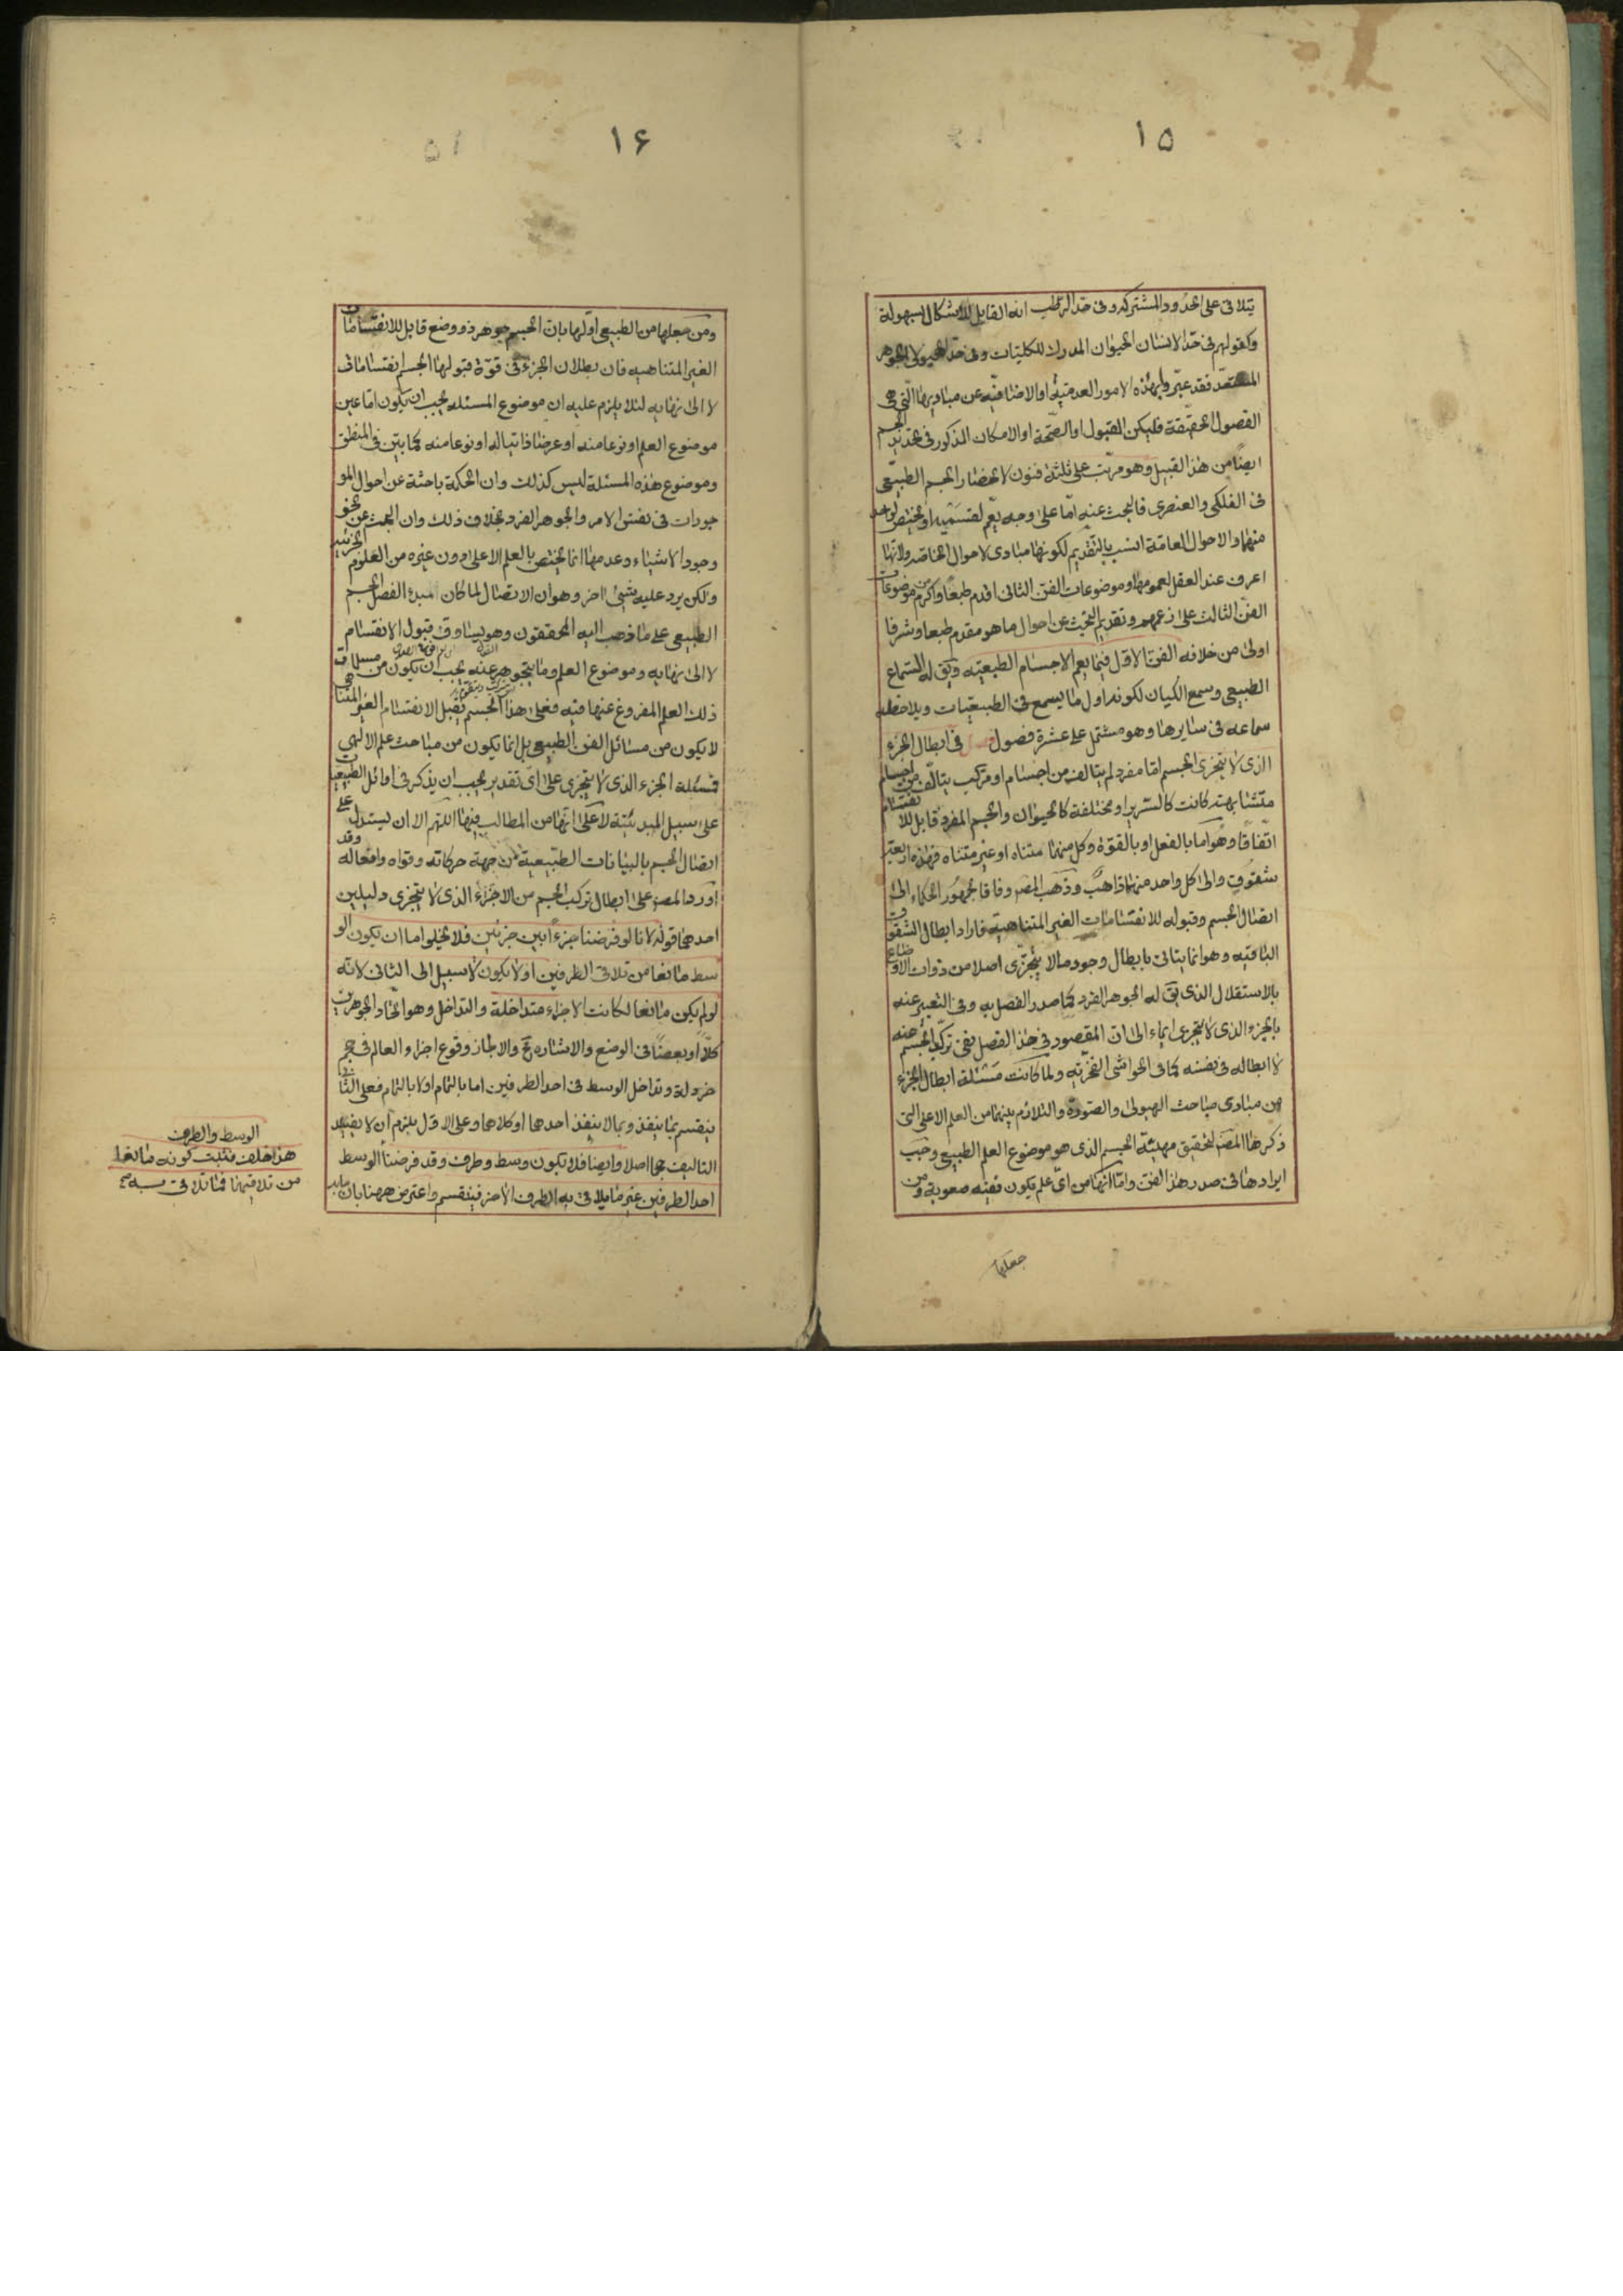 ١٥
يتلاقى على الحدود المشتركة وفى حد الرطب انه القابل للاشكال بسهولة
وكقولهم فى حد الانسان الحيوان المدرك للكليات وفى حد الهيولى الجوهر
المستعد فقد عبر وا بهذه الامور العدمية او الاضافية عن مباديها التى هى
الفصول الحقيقة فليكن القبول او الصحة او الامكان المذكور فى تحديد الجسم
ايضا من هذا القبيل وهو مرتب على ثلثة فنون لانحصار الجسم الطبيعى
فى الفلكى والعنصرى فالبحث عنه اما على وجه يعم لقسميه او يختص لواحد
منهما والاحوال العامة انسب بالتقديم لكونها مبادى لاحوال الخاصة ولانها
اعرف عند العقل لعمومها وموضوعات الفن الثانى اقدم طبعا واكرم من موضوعات
الفن الثالث على زعمهم وتقديم البحث عن احوال ما هو مقدم طبعا وشرفا
اولى من خلافه الفن الاول فيما يعم الاجسام الطبيعية ويق له السماع
الطبيعى وسمع الكيان لكونه اول ما يسمع فى الطبيعيات ويلاحظ
سماعه فى سايرها وهو مشتمل على عشرة فصول فى ابطال الجزء
الذى لا يتجزى الجسم اما مفرد لم يتالف من اجسام او مركب يتالف من اجسام
متشابهة كانت كالسرير او مختلفة كالحيوان والجسم المفرد قابل للانقسام
اتفاقا وهو اما بالفعل او بالقوة وكل منهما متناه او غير متناه فهذه اربعة
شقوق والى كل واحد منها ذاهب وذهب المص وفاقا لجمهور الحكماء الى
اتصال الجسم وقبوله للانقسامات الغير المتناهية فاراد ابطال الشقوق
الباقية وهو انما يتاتى بابطال وجود ما لا يتجزى اصلا من ذوات الاوضاع
بالاستقلال الذى يق له الجوهر الفرد كما صدر الفصل به وفى التعبير عنه
بالجزء الذى لا يتجزى ايماء الى ان المقصود فى هذا الفصل نفى تركب الجسم عنه
لا ابطاله فى نفسه كما فى الحواشى الفخرية ولما كانت مسئلة ابطال الجزء
من مبادى مباحث الهيولى والصورة والتلازم بينهما من العلم الاعلى التى
ذكرها المص لتحقيق مهية الجسم الذى هو موضوع العلم الطبيعى وجب
ايرادها فى صدر هذا الفن واما انها من اى علم يكون ففيه صعوبة ومن
جعلها
١۶
ومن جعلها من الطبيعى اولها بان الجسم جوهر ذو وضع قابل للانقسامات
الغير المتناهيه فان بطلان الجزء فى قوة قبولها الجسم انقسامات
لا الى نهايه لئلا يلزم عليه ان موضوع المسئله يجب ان يكون اما عين
موضوع العلم او نوعا منه او عرضا ذاتيا له او نوعا منه كما بين فى المنطق
وموضوع هذه المسئلة ليس كذلك وان الحكمة باحثة عن احوال المو
جودات فى نفس الامر والجوهر الفرد بخلاف ذلك وان البحث عن نحو
وجود الاشياء وعدمها انما يختص بالعلم الاعلى دون غيره من العلوم الجزئية
ولكن يرد عليه شئ اخر وهو ان الاتصال لما كان مبدء الفصل الجسم
الطبيعى على ما ذهب اليه المحققون وهو يساوق قبول الانقسام
لا الى نهايه وموضوع العلم وما يتجوهر عنه يجب ان يكون من مسلمات
ذلك العلم المفروغ عنها فيه فعلى هذا الجسم يقبل الانقسام الغير المتناهى
لا يكون من مسائل الفن الطبيعى بل انما يكون من مباحث علم الالهى
فمسئلة الجزء الذى لا يتجزى على اى تقدير يجب ان يذكر فى اوائل الطبيعيات
على سبيل المبدئية لا على انها من المطالب فيها اللهم الا ان يستدل على
اتصال الجسم بالبيانات الطبيعية من جهة حركاته وقواه وافعاله وقد
اورد المص على ابطال تركب الجسم من الاجزاء الذى لا يتجزى دليلين
احدهما قوله لانا لو فرضنا جزءا بين جزئين فلا يخلو اما ان يكون الو
سط مانعا من تلاقى الطرفين او لا يكون لا سبيل الى الثانى لانه
لو لم يكن مانعا لكانت الاجزاء متداخلة والتداخل وهو اتحاد الجوهرين
كلا او بعضا فى الوضع والاشاره مح والا جاز وقوع اجزاء العالم فى حجم
خردلة وتداخل الوسط فى احد الطرفين اما بالتمام او لا بالتمام فعلى الثانى
ينقسم بما ينفذ وبما لا ينفذ احدهما او كلاهما وعلى الاول يلزم ان لا يفيد
التاليف حجما اصلا وايضا فلا يكون وسط وطرف وقد فرضنا الوسط
احد الطرفين غير ما يلاقى به الطرف الاخر فينقسم واعترض ههنا بان ما به
الوسط والطرف
هذا خلف فثبت كونه مانعا
من تلاقيهما فما تلاقى به صح